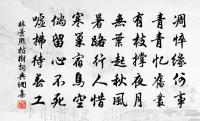 凋悴緣何事
青青憶舊叢
有枝撐夜月
無葉起秋風
暑路行人惜
寒巢宿鳥空
倘留心不死
噓拂待春工
林景熙枯樹詞典網書